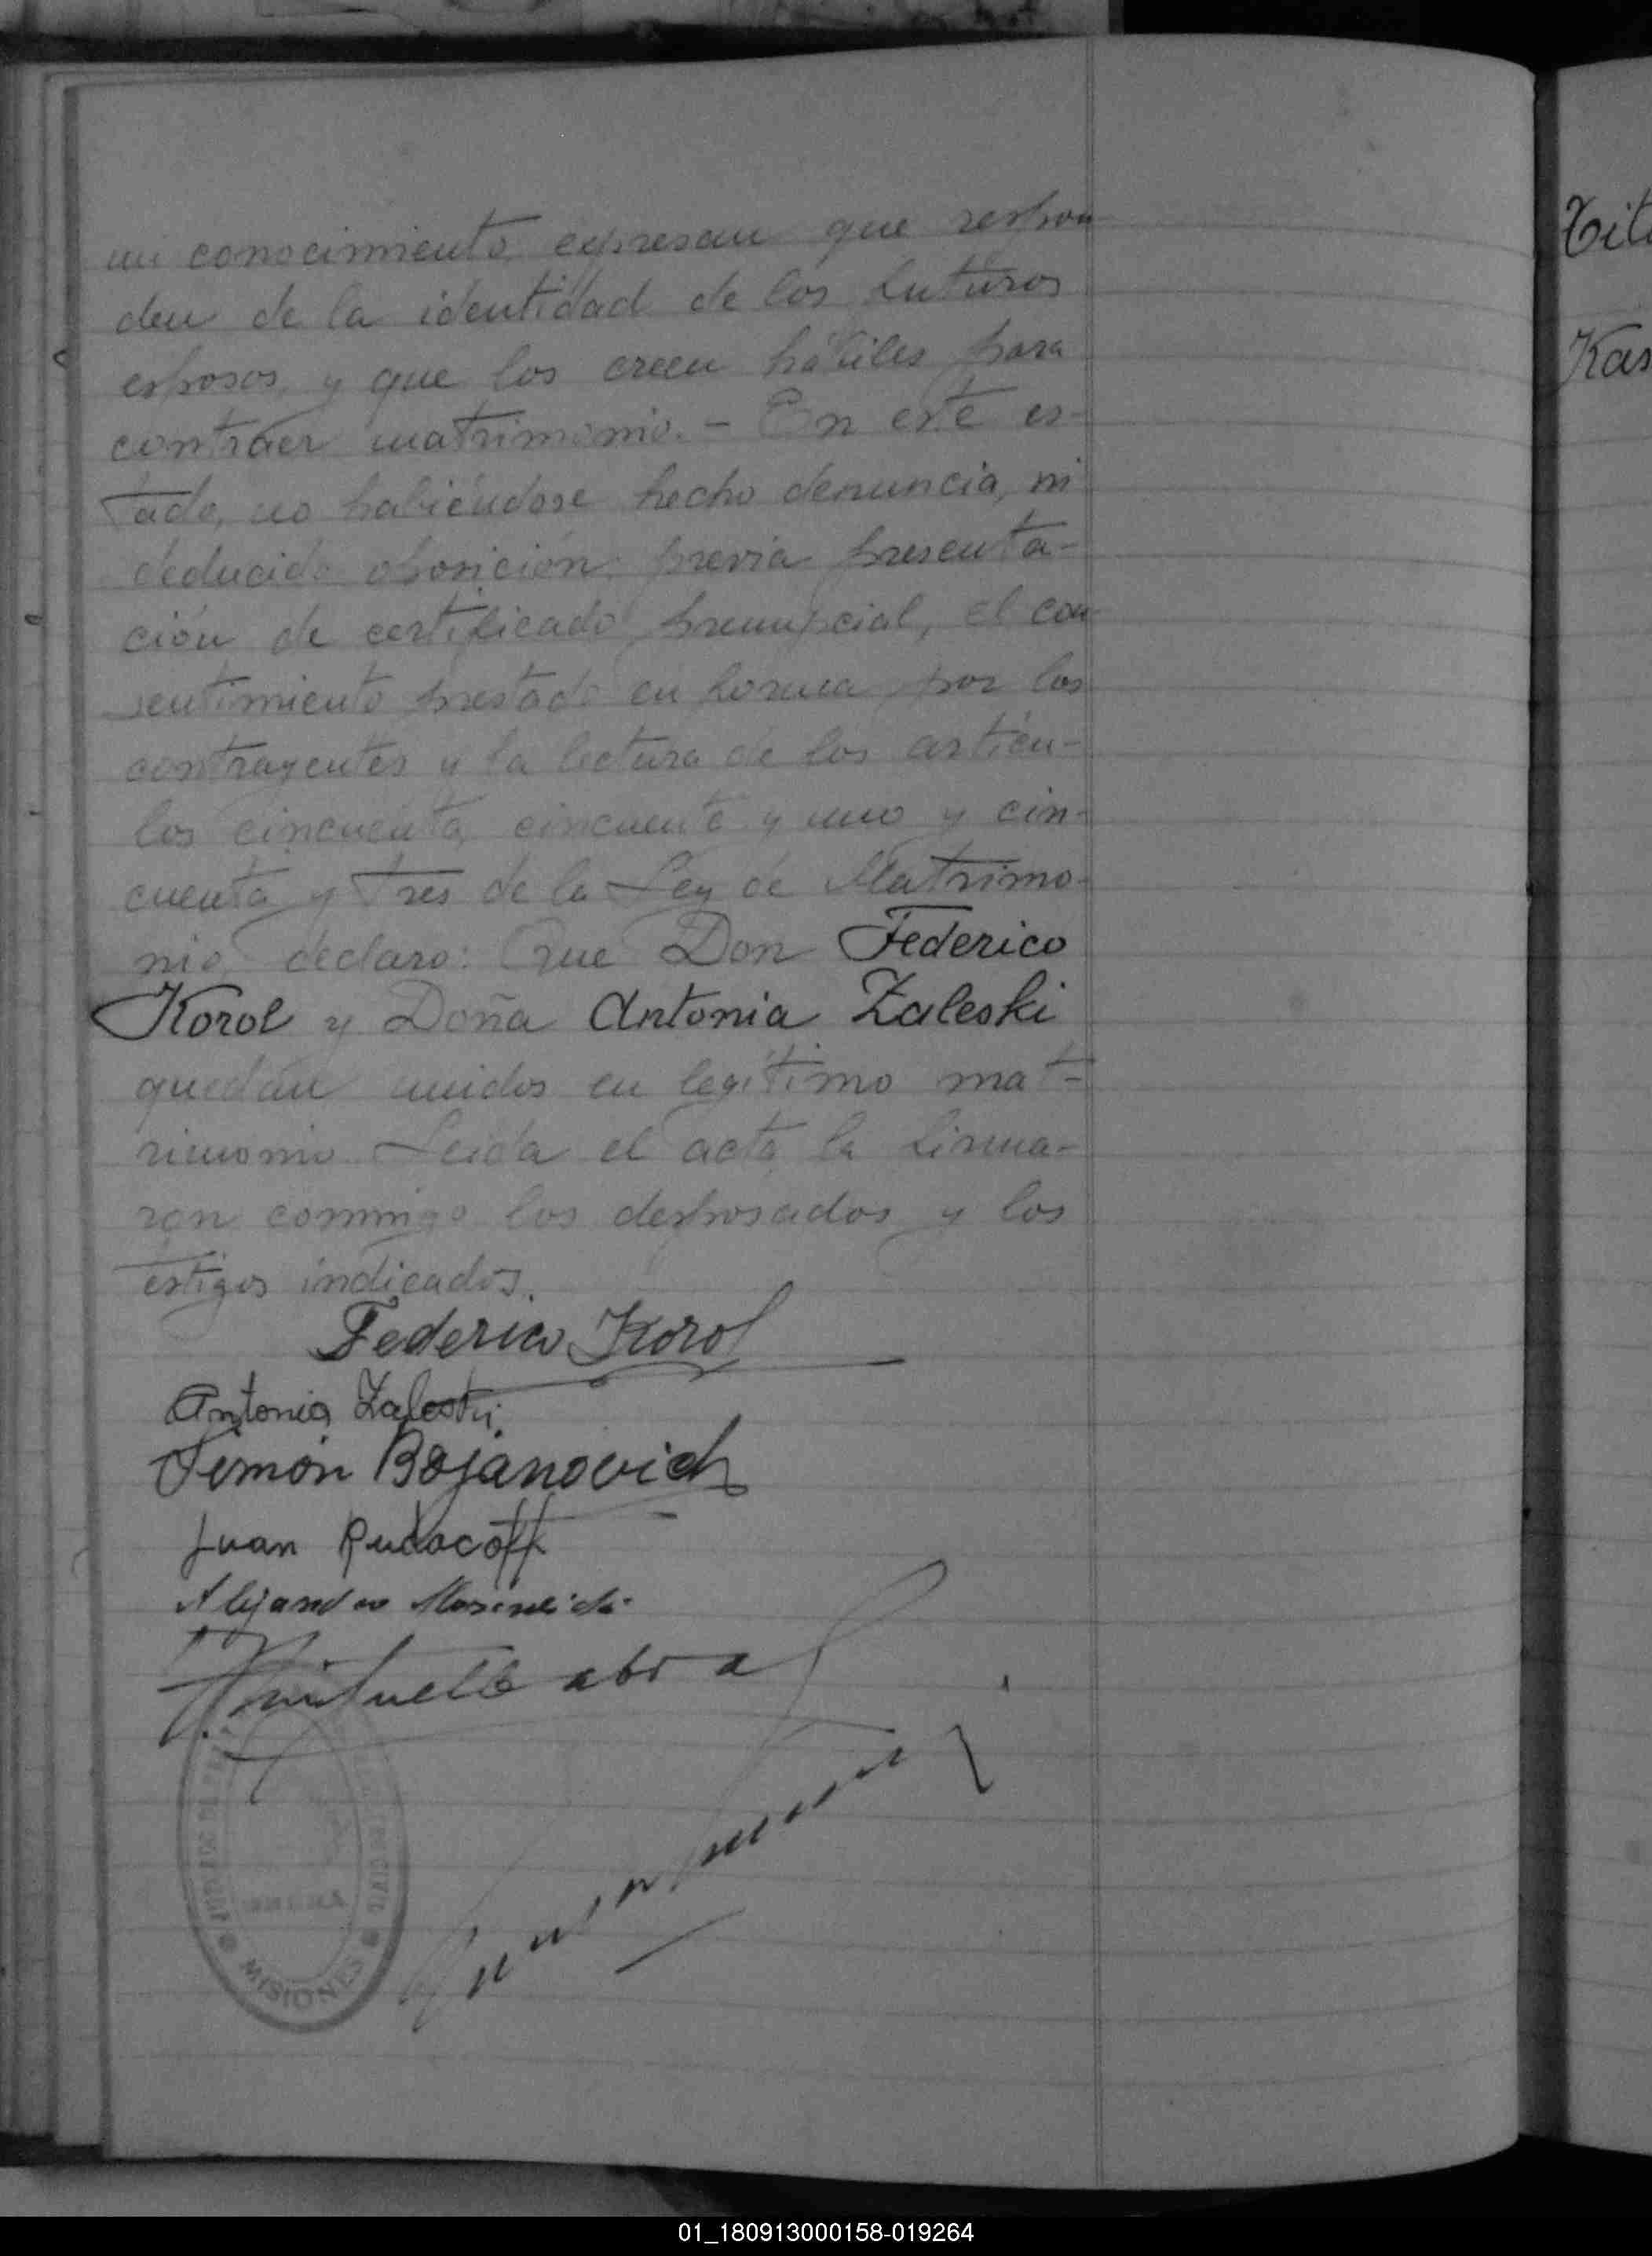 mi conocimiento, expresan que respon
den de la identidad de los futuros
esposos, y que los creen hábiles para
contraer matrimonio. - En este es-
tado, no habiéndose hecho denuncia, ni
deducido oposición; previa presenta-
ción de certificado prenupcial, el con
sentimiento prestado en forma por los
contrayentes y la lectura de los artícu-
los cincuenta, cincuenta y uno y cin-
cuenta y tres de la Ley de Matrimo-
nio, declaro: Que Don Federico
Korol y Doña Antonia Zaleski
quedan unidos en legítimo mat-
rimonio. Leida el acta, la firma-
ron conmigo los desposados y los
testigos indicados.
Federico Korol
Antonia Zaleski
Simón Bojanovich
Juan Rudacoff
Alejandro
MISIONES
Tit
Kas
01_180913000158-019264